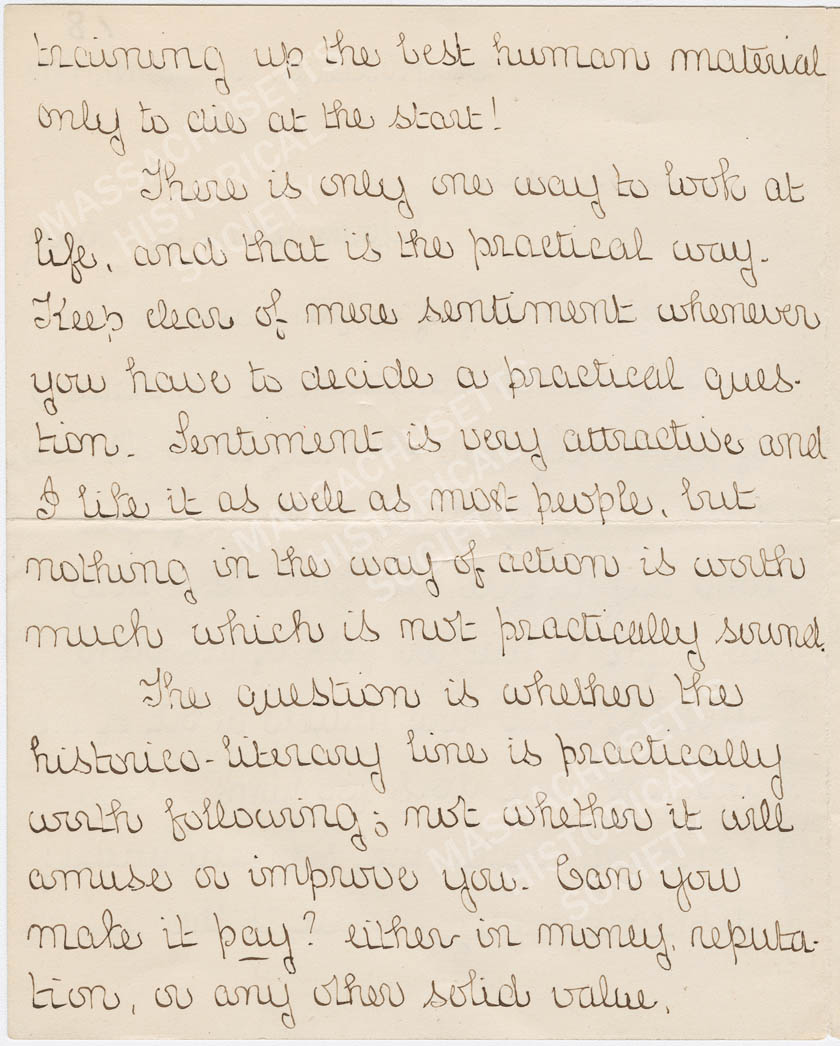 training up the best human material
only to die at the start!
There is only one way to look at
life, and that is the practical way.
Keep clear of mere sentiment whenever
you have to decide a practical ques-
tion. Sentiment is very attractive and
I like it as well as most people, but
nothing in the way of action is worth
much which is not practically sound.
The question is whether the
historico-literary line is practically
worth following; not whether it will
amuse or improve you. Can you
make it pay? either in money, reputa-
tion, or any other solid value.
MASSACHUSETTS
HISTORICAL
SOCIETY
MASSACHUSETTS
HISTORICAL
SOCIETY
MASSACHUSETTS
HISTORICAL
SOCIETY